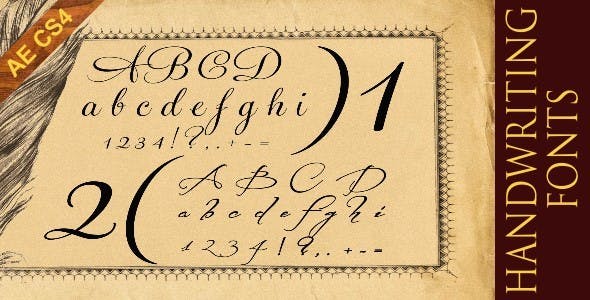 AE CS4
A B C D
a b c d e f g h i
1 2 3 4 ! ? , . + - =
) 1
2 (
A B C D
a b c d e f g h i
1 2 3 4 ! ? , . + - =
HANDWRITING
FONTS